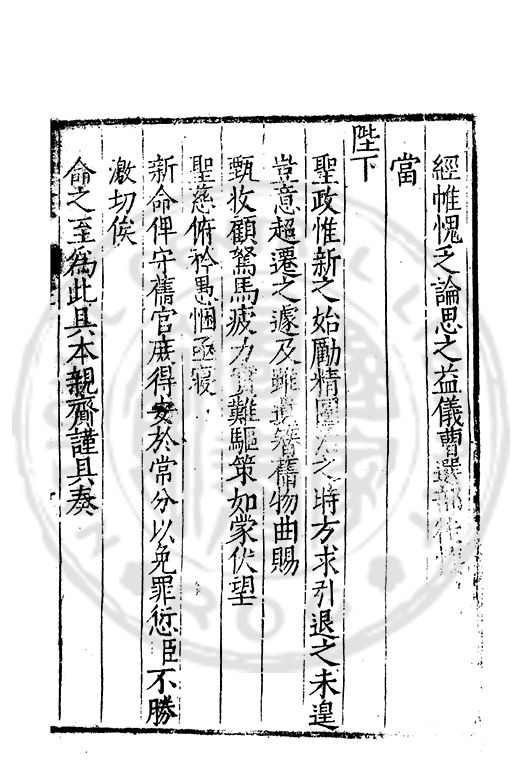 經帷愧乏論思之益儀曹選部
當
陛下
聖政惟新之始勵精圖治之時方求引退之未遑
豈意超遷之遽及雖遺簪舊物曲賜
甄收顧駑馬疲力實難驅策如蒙伏望
聖慈俯衿愚悃亟寢
新命俾守舊官庶得安於常分以免罪愆臣不勝
激切俟
命之至為此具本親齎謹具奏